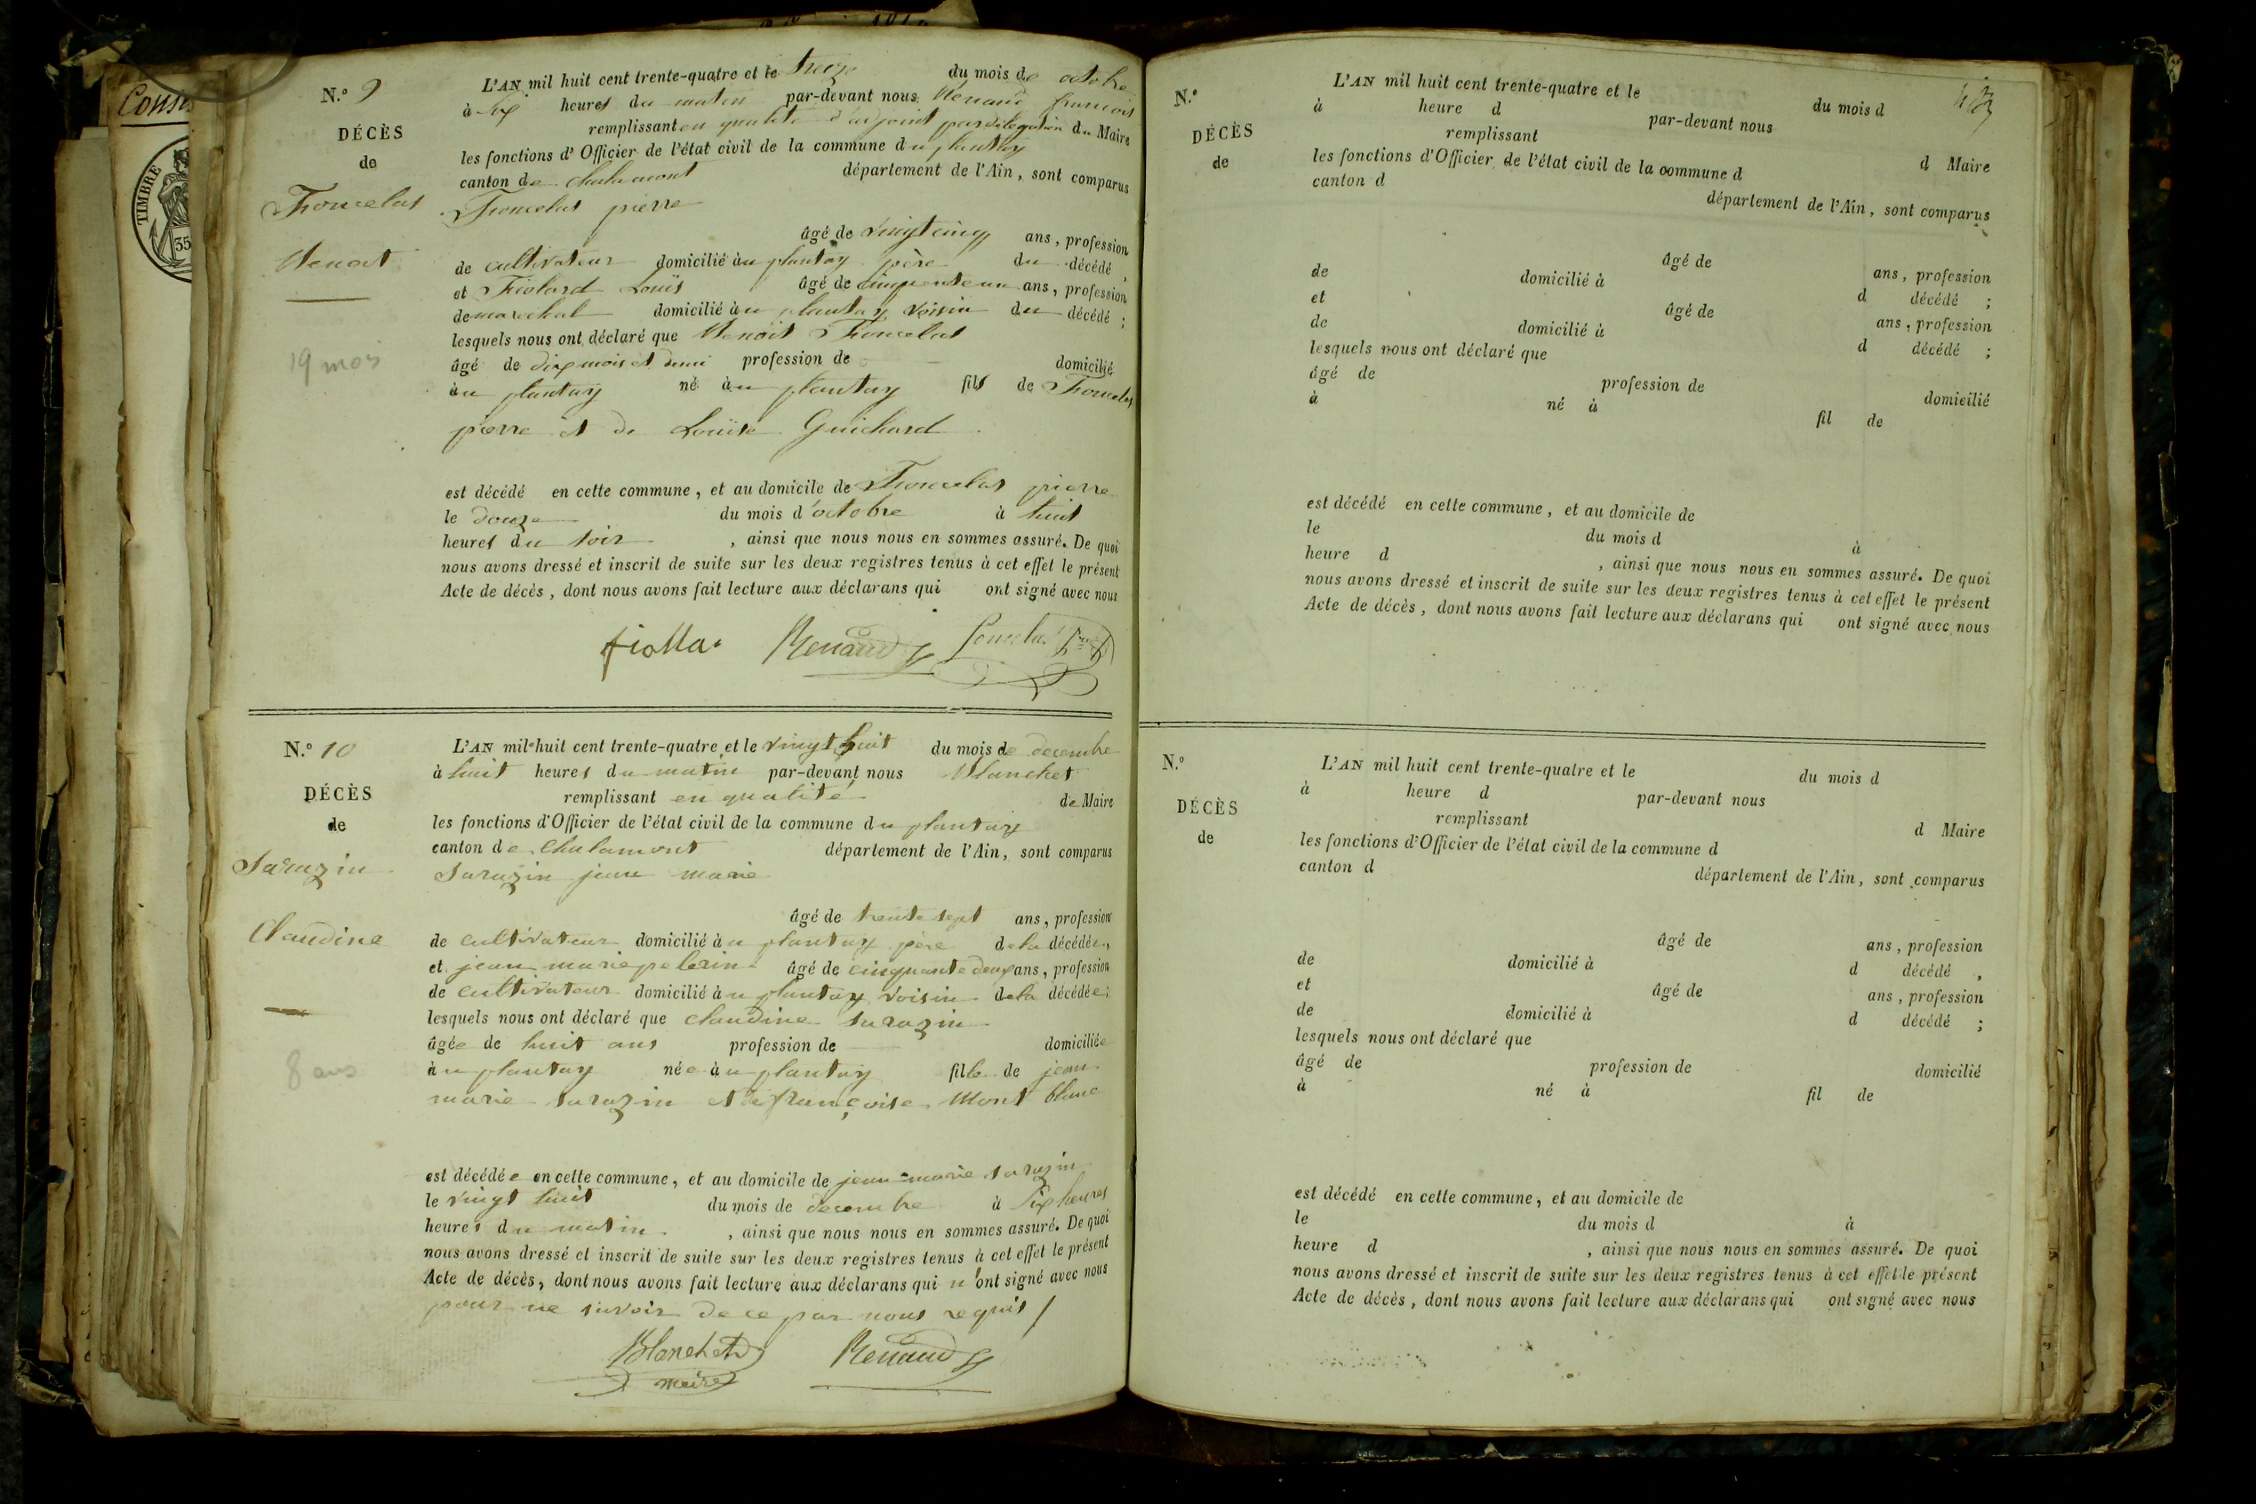 Cons
TIMBRE
35
N.º 9
DÉCÈS
de
Froncelas
Benoit
19 mois
L'AN mil huit cent trente-quatre et le treize du mois de octobre
à six heures du matin par-devant nous Renaud francois
remplissant en qualité d'adjoint par délégation du Maire
les fonctions d'Officier de l'état civil de la commune du plantay
canton de chalamont département de l'Ain, sont comparus
pierre
âgé de vingt cinq ans, profession
de cultivateur domicilié àu plantay père du décédé,
et Louis âgé de cinquante un ans, profession
de marechal domicilié àu plantay voisin du décédé;
lesquels nous ont déclaré que Benoit Froncelas
âgé de dix mois et demi profession de domicilié
àu plantay né àu plantay fils de Froncelas
pierre et de Louise Guichard
est décédé en cette commune, et au domicile de Froncelas pierre
le douze du mois d'octobre à huit
heures du soir, ainsi que nous nous en sommes assuré. De quoi
nous avons dressé et inscrit de suite sur les deux registres tenus à cet effet le présent
Acte de décès, dont nous avons fait lecture aux déclarans qui ont signé avec nous
fiolla Renaud
N.º 10
DÉCÈS
de
Sarazin
Claudine
8 ans
L'AN mil huit cent trente-quatre et le vingt huit du mois de decembre
à huit heures du matin par-devant nous Blanchet
remplissant en qualité de Maire
les fonctions d'Officier de l'état civil de la commune du plantay
canton de Chalamont département de l'Ain, sont comparus
Sarazin jean marie
âgé de trente sept ans, profession
de cultivateur domicilié àu plantay père de la décédée,
et jean marie pelerin âgé de cinquante deux ans, profession
de cultivateur domicilié àu plantay voisin de la décédée;
lesquels nous ont déclaré que claudine sarazin
âgée de huit ans profession de domiciliée
àu plantay née àu plantay fille de jean
marie sarazin et de françoise Mont blanc
est décédée en cette commune, et au domicile de jean marie sarazin
le vingt huit du mois de decembre à six heures
heures du matin, ainsi que nous nous en sommes assuré. De quoi
nous avons dressé et inscrit de suite sur les deux registres tenus à cet effet le présent
Acte de décès, dont nous avons fait lecture aux déclarans qui n'ont signé avec nous
pour ne savoir de ce par nous requis /
Blanchet Renaud
maire
N.º
DÉCÈS
de
L'AN mil huit cent trente-quatre et le du mois d
à heure d par-devant nous
remplissant d Maire
les fonctions d'Officier de l'état civil de la commune d
canton d département de l'Ain, sont comparus
âgé de ans, profession
de domicilié à d décédé;
et âgé de ans, profession
de domicilié à d décédé;
lesquels nous ont déclaré que
âgé de profession de domicilié
à né à fil de
est décédé en cette commune, et au domicile de
le du mois d à
heure d, ainsi que nous nous en sommes assuré. De quoi
nous avons dressé et inscrit de suite sur les deux registres tenus à cet effet le présent
Acte de décès, dont nous avons fait lecture aux déclarans qui ont signé avec nous
N.º
DÉCÈS
de
L'AN mil huit cent trente-quatre et le du mois d
à heure d par-devant nous
remplissant d Maire
les fonctions d'Officier de l'état civil de la commune d
canton d département de l'Ain, sont comparus
âgé de ans, profession
de domicilié à d décédé,
et âgé de ans, profession
de domicilié à d décédé;
lesquels nous ont déclaré que
âgé de profession de domicilié
à né à fil de
est décédé en cette commune, et au domicile de
le du mois d à
heure d, ainsi que nous nous en sommes assuré. De quoi
nous avons dressé et inscrit de suite sur les deux registres tenus à cet effet le présent
Acte de décès, dont nous avons fait lecture aux déclarans qui ont signé avec nous